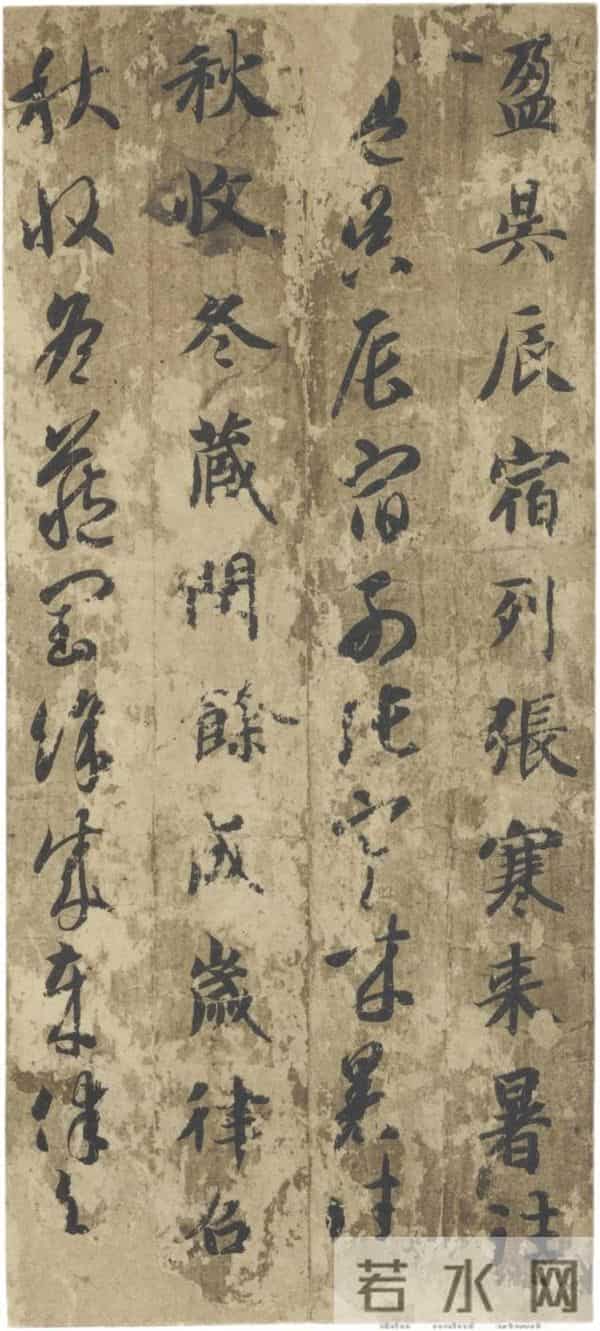 盈昃辰宿列張寒来暑往
盈昃辰宿列張寒来暑往
秋收冬蔵閏餘成歲律召
秋收冬藏閏餘成歲律召
若水网